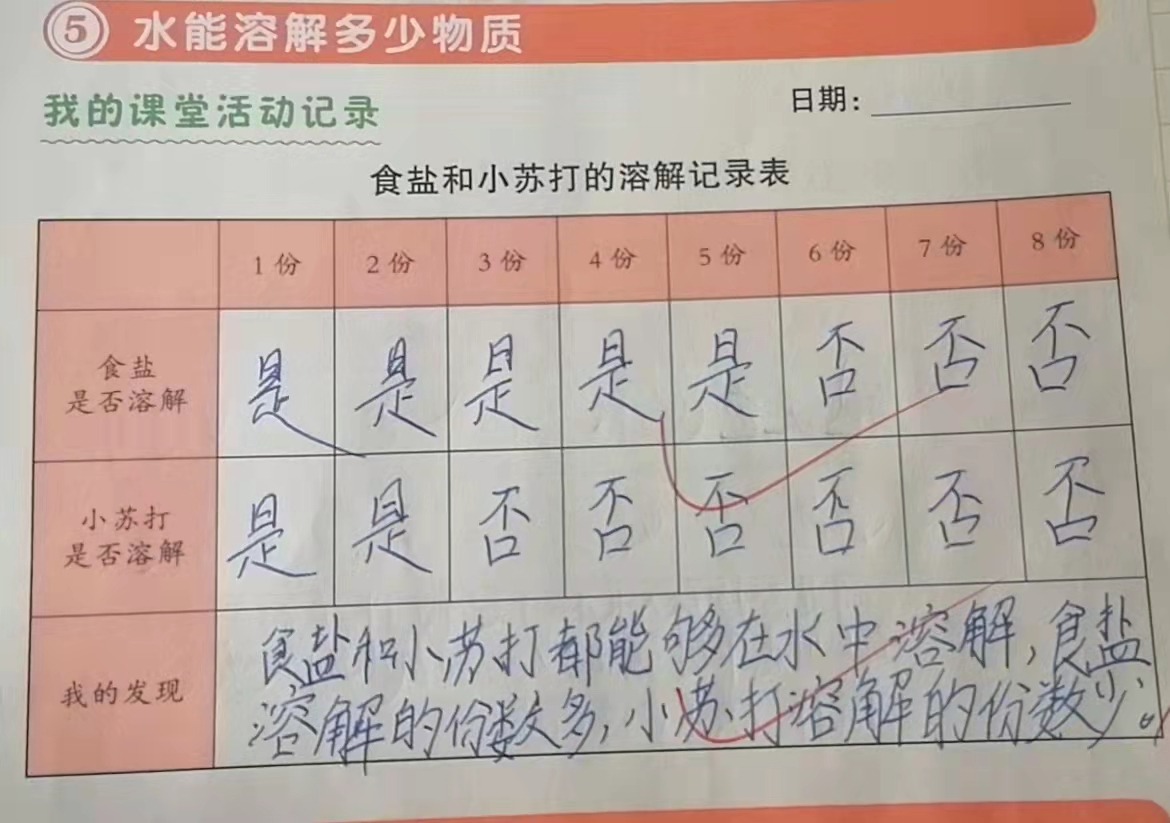 ⑤ 水能溶解多少物质
我的课堂活动记录
日期：
食盐和小苏打的溶解记录表
1份 2份 3份 4份 5份 6份 7份 8份
食盐
是否溶解
是 是 是 是 是 否 否 否
小苏打
是否溶解
是 是 否 否 否 否 否 否
我的发现
食盐和小苏打都能够在水中溶解,食盐
溶解的份数多,小苏打溶解的份数少。